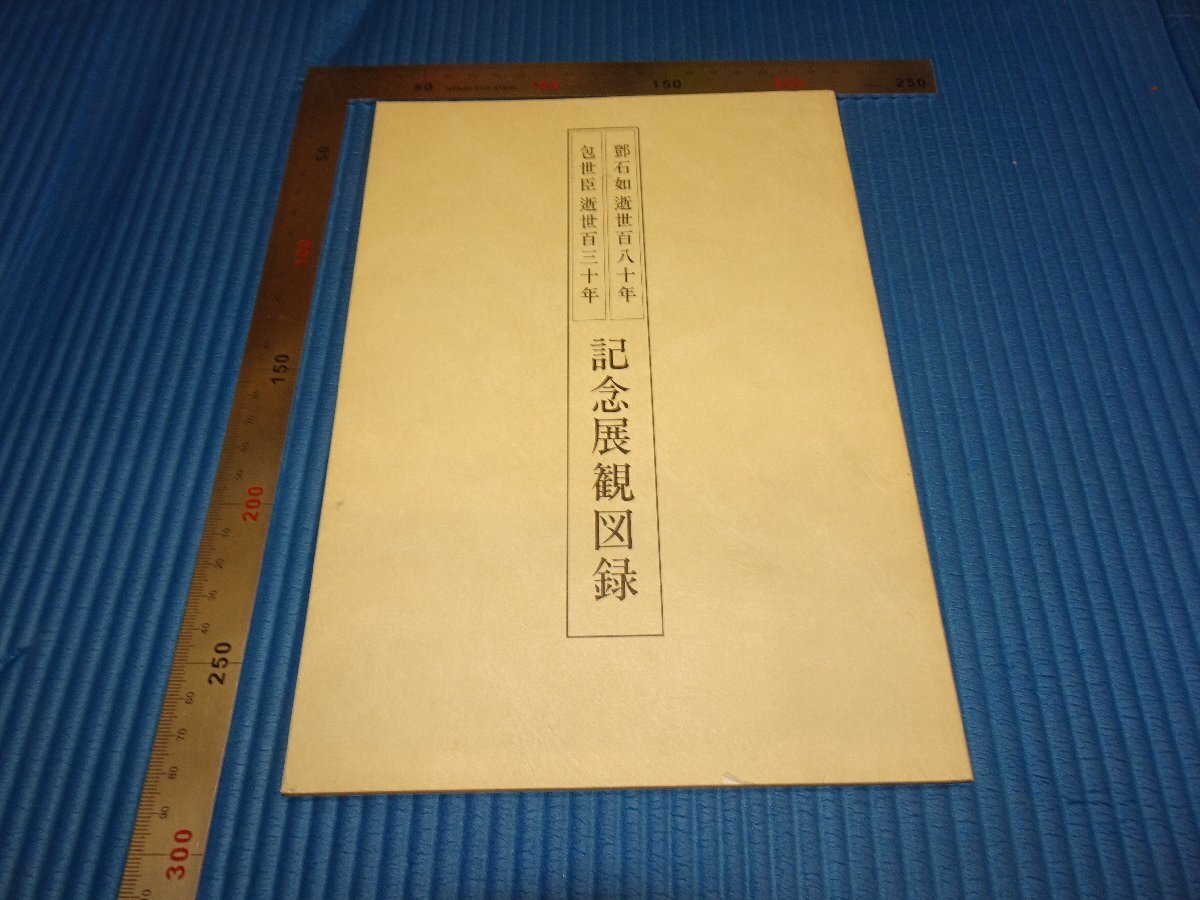 鄧石如 逝世百八十年
包世臣 逝世百三十年
記念展観図録
50 STAINLESS STEEL 100 150 200 250
50
100
150
200
250
300